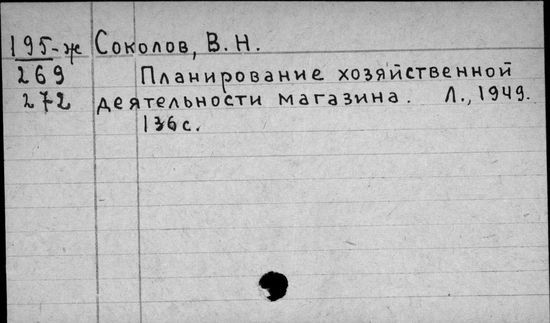 195-ж Соколов, В.Н.
269 Планирование хозяйственной
272 деятельности магазина. Л., 1949.
136с.